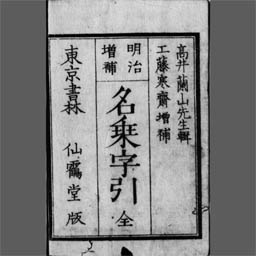 高井蘭山先生輯
工藤寒齋增補
明治
增補
名乗字引
全
東京書林
仙鶴堂版